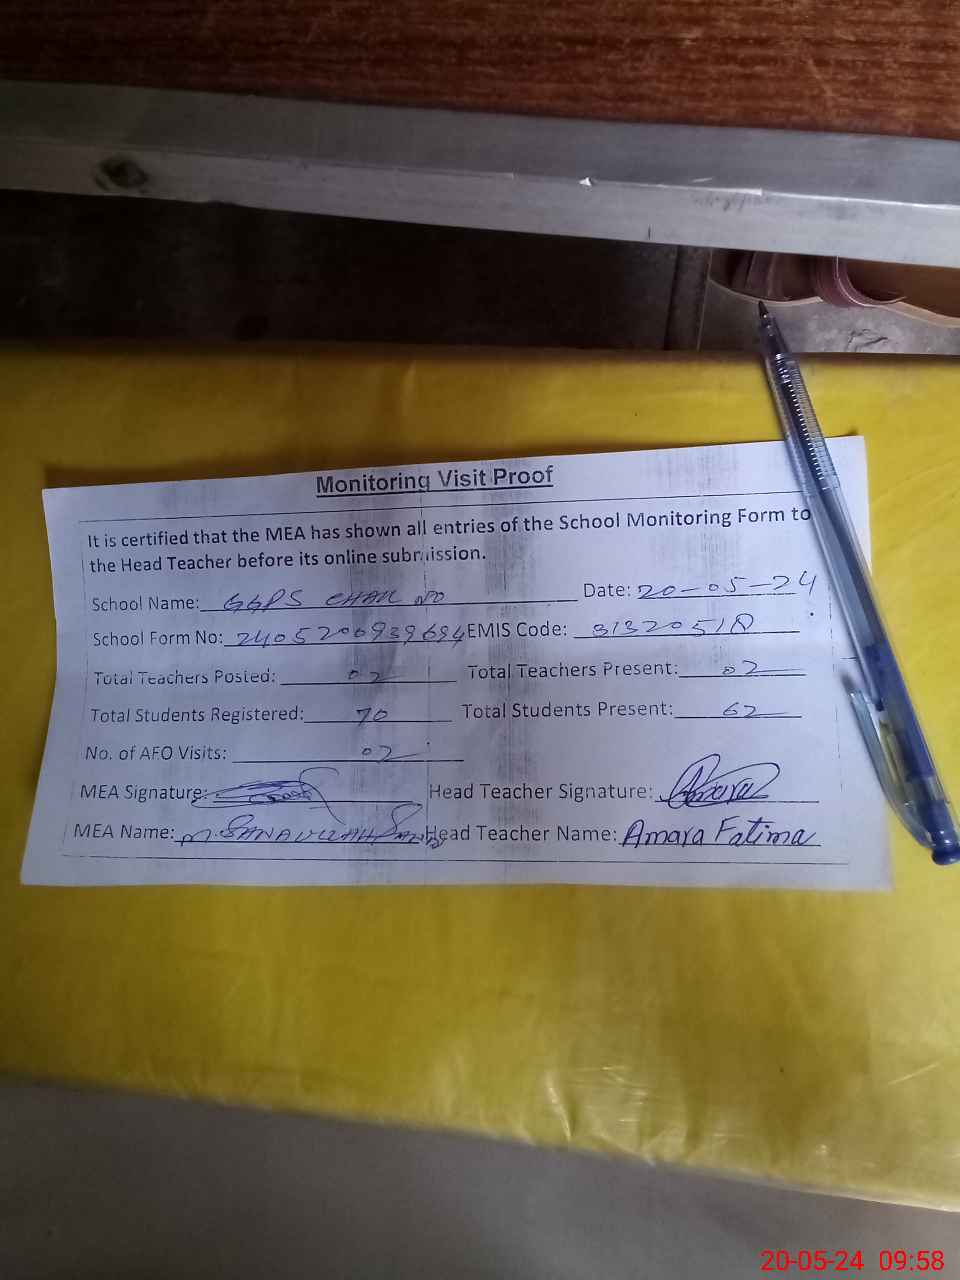 Monitoring Visit Proof
It is certified that the MEA has shown all entries of the School Monitoring Form to
the Head Teacher before its online submission.
School Name: GGPS CHAK NO Date: 20-05-24
School Form No: 2405200939694 EMIS Code: 31320518
Total Teachers Posted: 02 Total Teachers Present: 02
Total Students Registered: 70 Total Students Present: 62
No. of AFO Visits: 02
MEA Signature: Head Teacher Signature: Amara
MEA Name: M. SANAULLAH Head Teacher Name: Amara Fatima
20-05-24 09:58